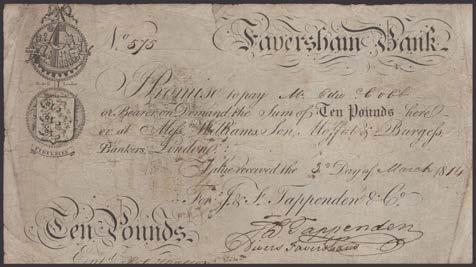 No. 575 Faversham Bank
I Promise to pay Mr.
or Bearer on Demand the Sum of Ten Pounds here
or at Messrs. Williams Son, Moffat & Burgess
Bankers, London.
Value received the 3d Day of March 1814
For J. & F. Tappenden & Co.
Ten Pounds. Tappenden
Faversham
Entd.